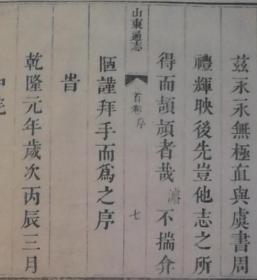 茲永永無極直與虞書周
禮輝映後先豈他志之所
得而頡頏者哉濂不揣介
山東通志
首卷序
七
陋謹拜手而爲之序
旹
乾隆元年歲次丙辰三月